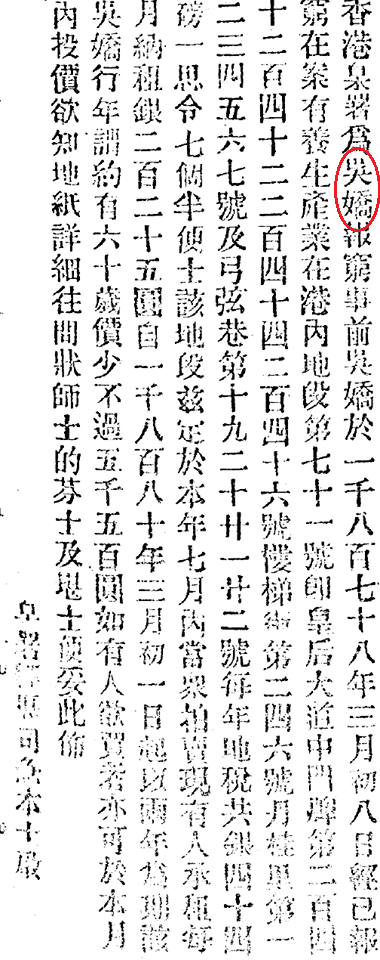 香港臬署爲吳嬌報窮事前吳嬌於一千八百七十八年三月初八日經已報
窮在案有養生產業在港內地段第七十一號卽皇后大道中門牌第二百四
十二百四十二二百四十四二百四十六號樓梯街第二四六號月桂里第一
二三四五六七號及弓弦巷第十九二十廿一廿二號每年地稅共銀四十四
磅一思令七個半便士該地段兹定於本年七月內當衆拍賣現有人承租每
月納租銀二百二十五圓自一千八百八十年三月初一日起以兩年爲期該
吳嬌行年謂約有六十歲價少不過五千五百圓如有人欲買者亦可於本月
內投價欲知地紙詳細往問狀師士的芬士及堝士便妥此佈
臬署 司 本士啟